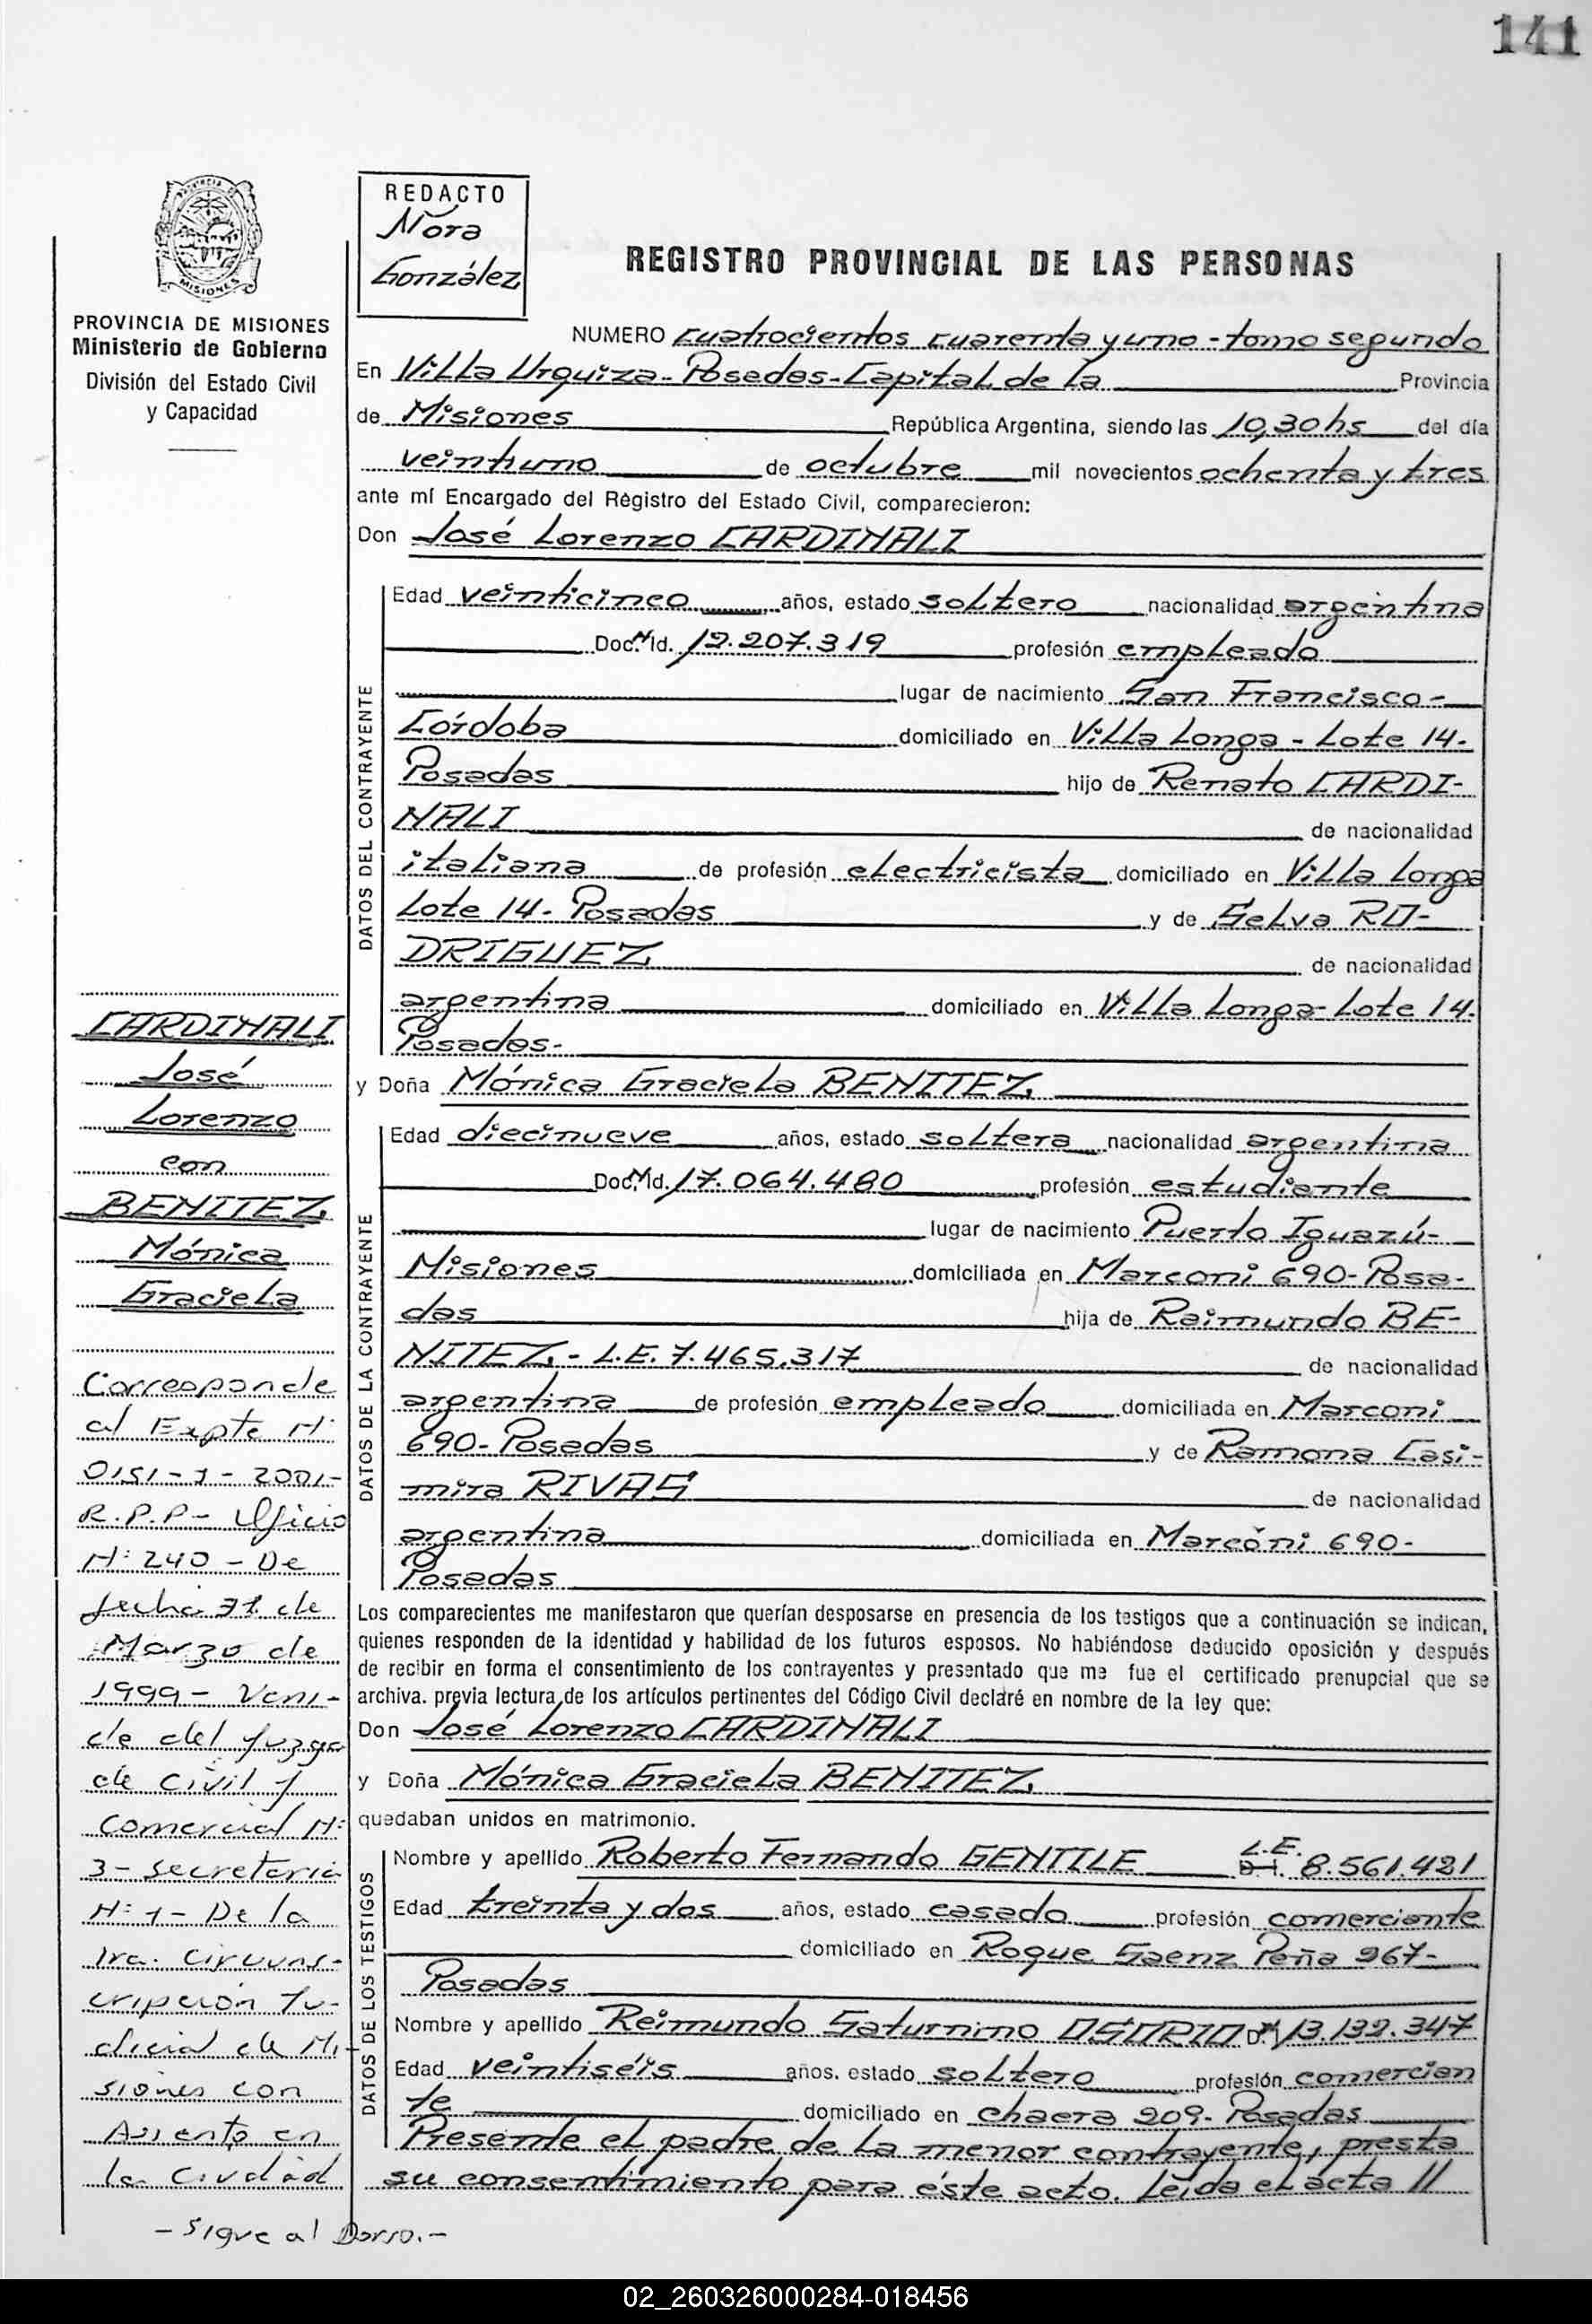 141
REDACTO
Nora
González
REGISTRO PROVINCIAL DE LAS PERSONAS
PROVINCIA DE MISIONES
Ministerio de Gobierno
División del Estado Civil
y Capacidad
NUMERO cuatrocientos cuarenta y uno - tomo segundo
En Villa Urquiza - Posadas - Capital de la Provincia
de Misiones República Argentina, siendo las 10,30 hs del día
veintiuno de octubre mil novecientos ochenta y tres
ante mí Encargado del Registro del Estado Civil, comparecieron:
Don José Lorenzo CARDINALI
DATOS DEL CONTRAYENTE
Edad veinticinco años, estado soltero nacionalidad argentina
Doc. N. Id. 12.207.319 profesión empleado
lugar de nacimiento San Francisco -
Córdoba domiciliado en Villa Longa - Lote 14 -
Posadas hijo de Renato CARDI-
NALI de nacionalidad
italiana de profesión electricista domiciliado en Villa Longa
Lote 14 - Posadas y de Selva RO-
DRIGUEZ de nacionalidad
argentina domiciliado en Villa Longa - Lote 14 -
Posadas -
y Doña Mónica Graciela BENITEZ
DATOS DE LA CONTRAYENTE
Edad diecinueve años, estado soltera nacionalidad argentina
Doc. N. Id. 17.064.480 profesión estudiante
lugar de nacimiento Puerto Iguazú -
Misiones domiciliada en Marconi 690 - Posa-
das hija de Raimundo BE-
NITEZ - L.E. 7.465.317 de nacionalidad
argentina de profesión empleado domiciliada en Marconi
690 - Posadas y de Ramona Casi-
mira RIVAS de nacionalidad
argentina domiciliada en Marcóni 690 -
Posadas
Los comparecientes me manifestaron que querían desposarse en presencia de los testigos que a continuación se indican,
quienes responden de la identidad y habilidad de los futuros esposos. No habiéndose deducido oposición y después
de recibir en forma el consentimiento de los contrayentes y presentado que me fue el certificado prenupcial que se
archiva. previa lectura de los artículos pertinentes del Código Civil declaré en nombre de la ley que:
Don José Lorenzo CARDINALI
y Doña Mónica Graciela BENITEZ
quedaban unidos en matrimonio.
DATOS DE LOS TESTIGOS
Nombre y apellido Roberto Fernando GENTILE L.E. D.I. 8.561.421
Edad treinta y dos años, estado casado profesión comerciante
domiciliado en Roque Saenz Peña 967 -
Posadas
Nombre y apellido Reimundo Saturnino OSORIO D.N.I. 13.132.347
Edad veintiséis años. estado soltero profesión comercian
te domiciliado en chacra 209 - Posadas
Presente el padre de la menor contrayente, presta
su consentimiento para éste acto. Leída el acta //
CARDINALI
José
Lorenzo
con
BENITEZ
Mónica
Graciela
Corresponde
al Expte N:
0151 - 1 - 2001 -
R.P.P - Oficio
N: 240 - De
fecha 31 de
Marzo de
1999 - Veni -
de del Juzga
do Civil y
Comercial N:
3 - Secretaria
N: 1 - De la
1ra. Circuns -
cripción Ju -
dicial de Mi -
siones con
Asiento en
la Ciudad
- Sigue al Dorso. -
02_260326000284-018456